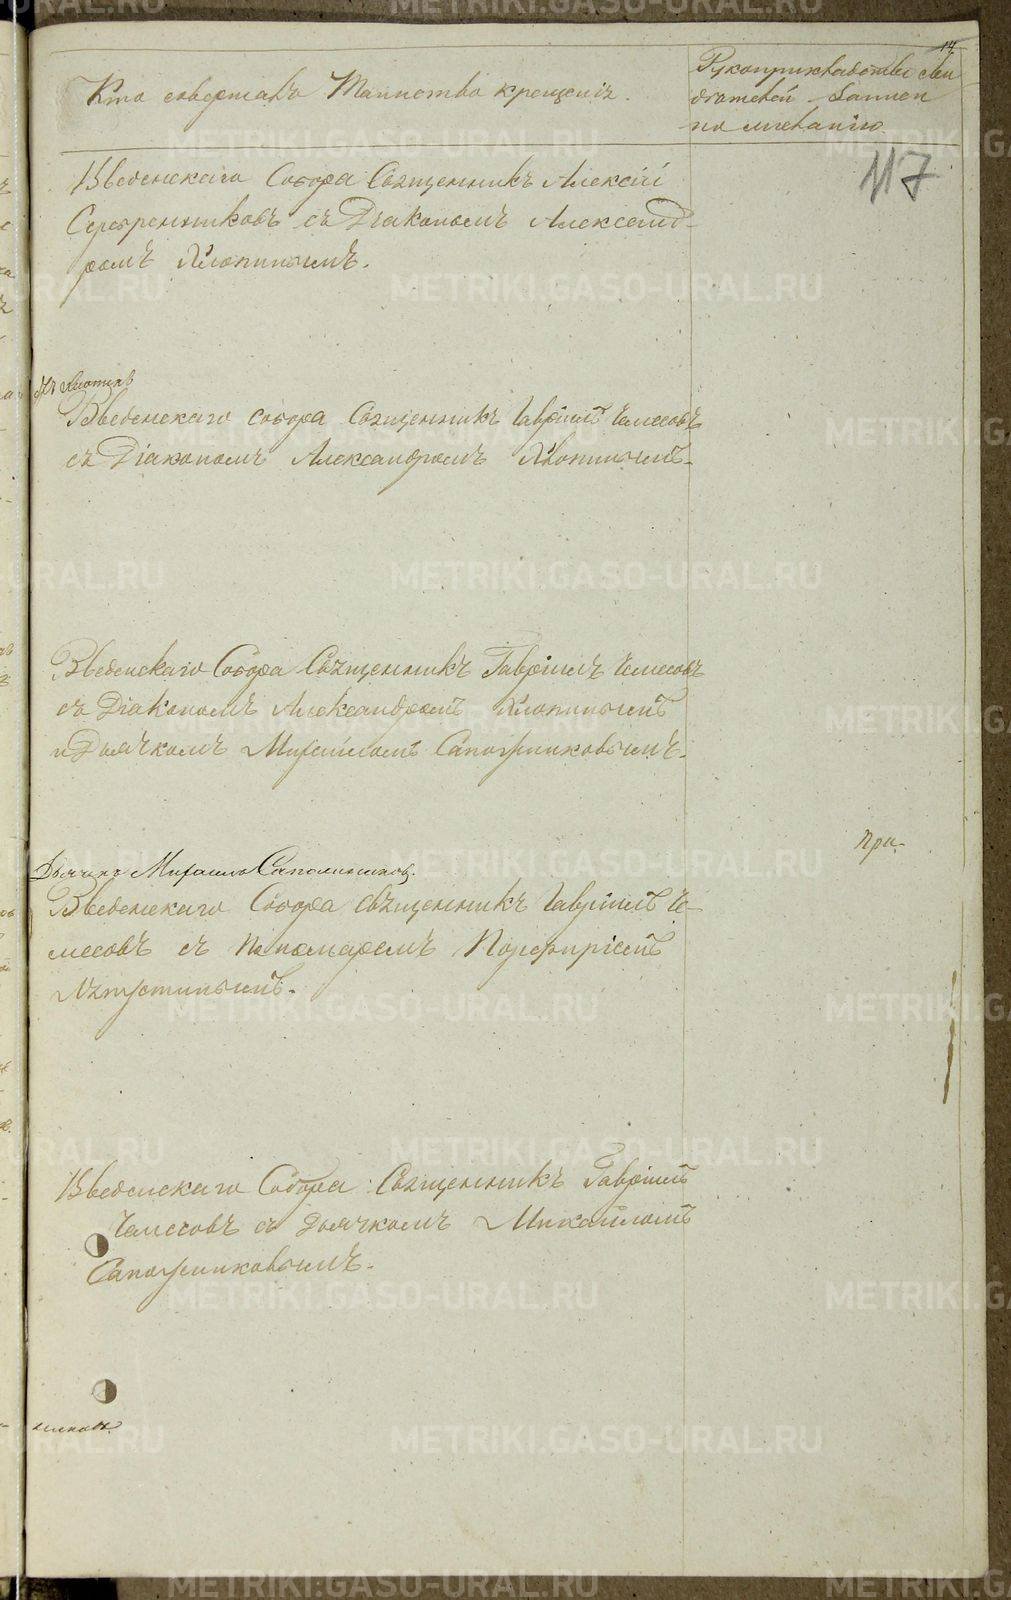 14
Кто совершалъ Таинство крещенія.
Рукоприкладство сви
дѣтелей
по желанію
117
Введенскаго Собора Священникъ Алексій
Серебренниковъ съ Діакономъ Александ-
ромъ Хлопинымъ.
Введенскаго собора Священникъ Гавріилъ Чемесовъ
съ Діакономъ Александромъ Хлопинымъ.
Введенскаго Собора Священникъ Гавріилъ Чемесовъ
съ Діакономъ Александромъ Хлопинымъ
и Дьячкомъ Михаиломъ Сапожниковымъ.
При-
Дьячекъ Михаилъ Сапожниковъ.
Введенскаго Собора священникъ Гавріилъ Че-
месовъ съ Пономаремъ Порфиріемъ
Введенскаго Собора Священникъ Гавріилъ
Чемесовъ съ Дьячкомъ Михаиломъ
Сапожниковымъ.
METRIKI.GASO-URAL.RU